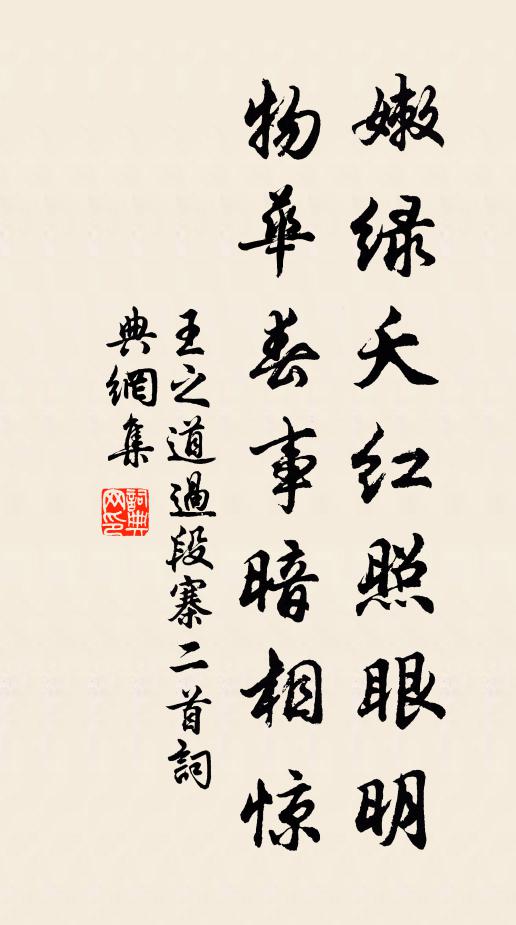 嫩绿夭红照眼明
物華春事暗相惊
王之道過段寨二首詞
典網集
詞典网印